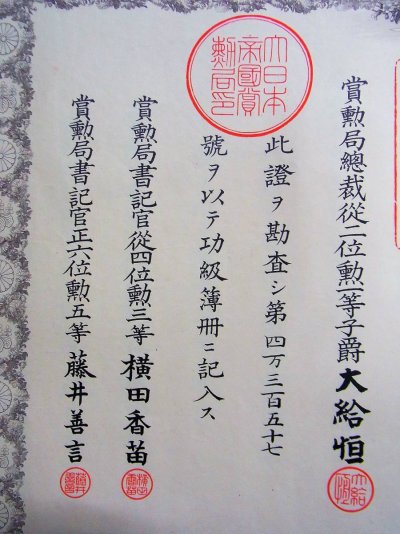 賞勲局總裁從二位勲一等子爵大給恒
此證ヲ勘査シ第四万三百五十七
號ヲ以テ功級簿冊ニ記入ス
賞勲局書記官從四位勲三等横田香苗
賞勲局書記官正六位勲五等藤井善言
大日本
帝國賞
勲局印